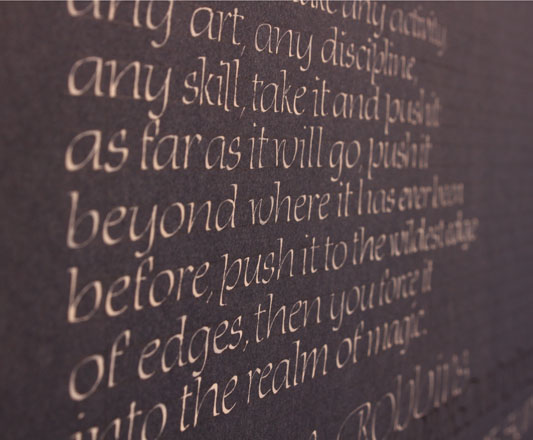 take any activity
any art, any discipline,
any skill, take it and push it
as far as it will go, push it
beyond where it has ever been
before, push it to the wildest edge
of edges, then you force it
into the realm of magic.
Robbins